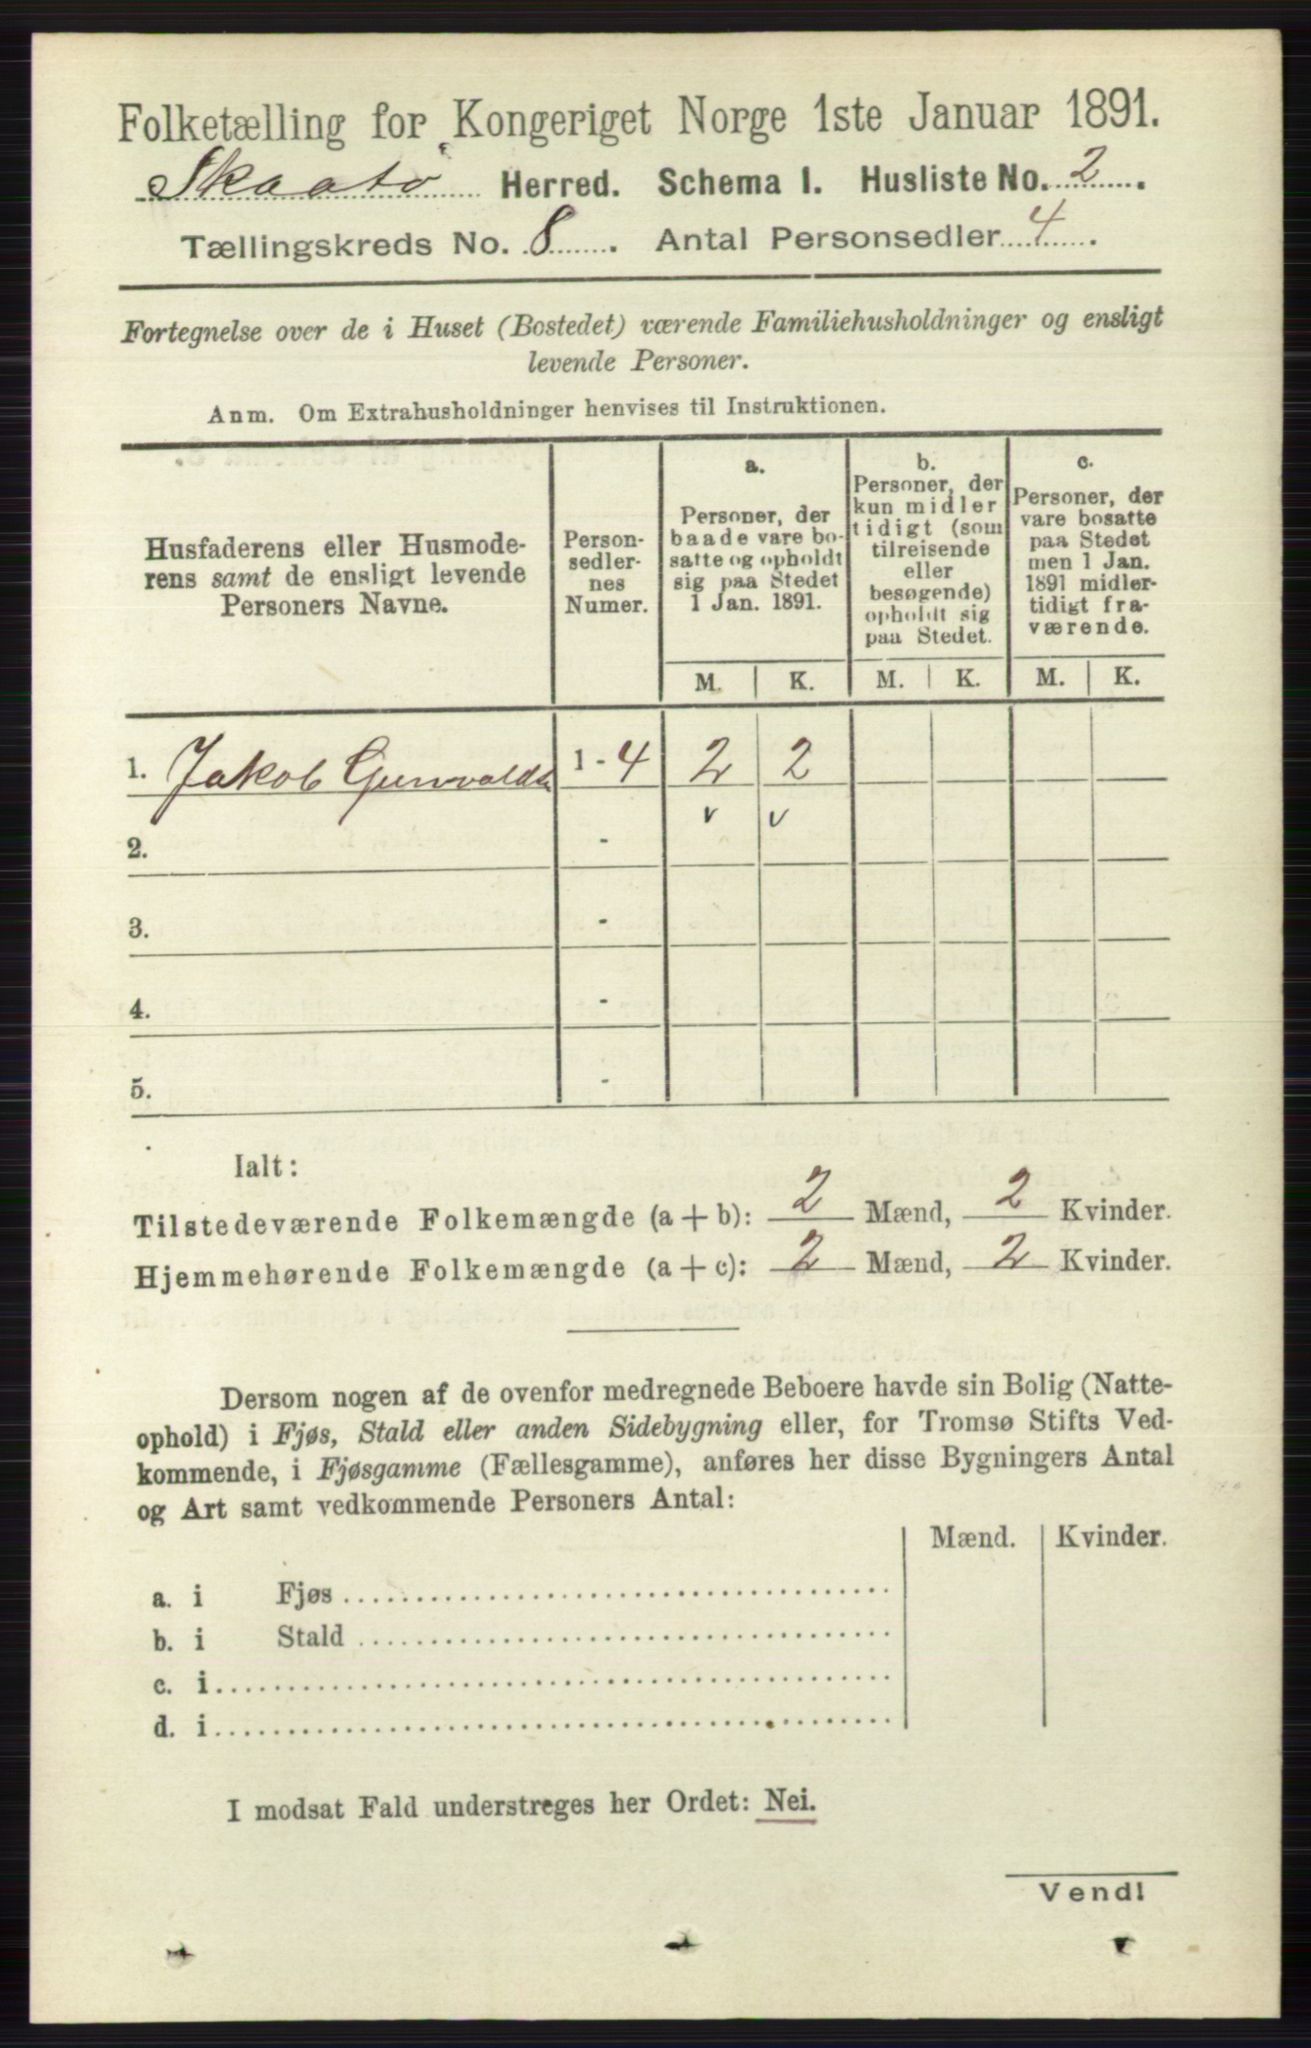 Folketælling for Kongeriget Norge 1ste Januar 1891.
Skaatø Herred. Schema 1. Husliste No. 2.
Tællingskreds No. 8. Antal Personsedler 4.
Fortegnelse over de i Huset (Bostedet) værende Familiehusholdninger og ensligt
levende Personer.
Anm. Om Extrahusholdninger henvises til Instruktionen.
Husfaderens eller Husmode-
rens samt de ensligt levende
Personers Navne.
Person-
sedler-
nes
Numer.
a.
Personer, der
baade vare bo-
satte og opholdt
sig paa Stedet
1 Jan. 1891.
b.
Personer, der
kun midler
tidigt (som
tilreisende
eller
besøgende)
opholdt sig
paa Stedet.
c.
Personer, der
vare bosatte
paa Stedet
men 1 Jan.
1891 midler-
tidigt fra-
værende.
M. K. M. K. M. K.
1. Jakob Gunvalds 1 - 4 2 2
v v
2. -
3. -
4. -
5. -
Ialt:
Tilstedeværende Folkemængde (a + b): 2 Mænd, 2 Kvinder.
Hjemmehørende Folkemængde (a + c): 2 Mænd, 2 Kvinder.
Dersom nogen af de ovenfor medregnede Beboere havde sin Bolig (Natte-
ophold) i Fjøs, Stald eller anden Sidebygning eller, for Tromsø Stifts Ved-
kommende, i Fjøsgamme (Fællesgamme), anføres her disse Bygningers Antal
og Art samt vedkommende Personers Antal:
Mænd. Kvinder.
a. i Fjøs
b. i Stald
c. i
d. i
I modsat Fald understreges her Ordet: Nei.
Vendl